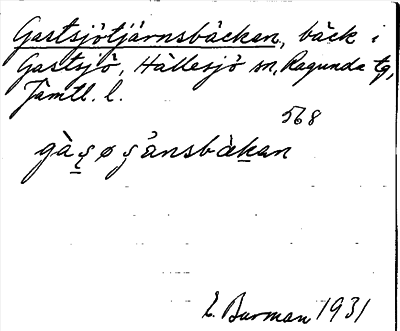 Gastsjötjärnsbäcken, bäck i
Gastsjö, Hällesjö sn, Ragunda tg,
Jämtl. l.
568
E. Burman 1931